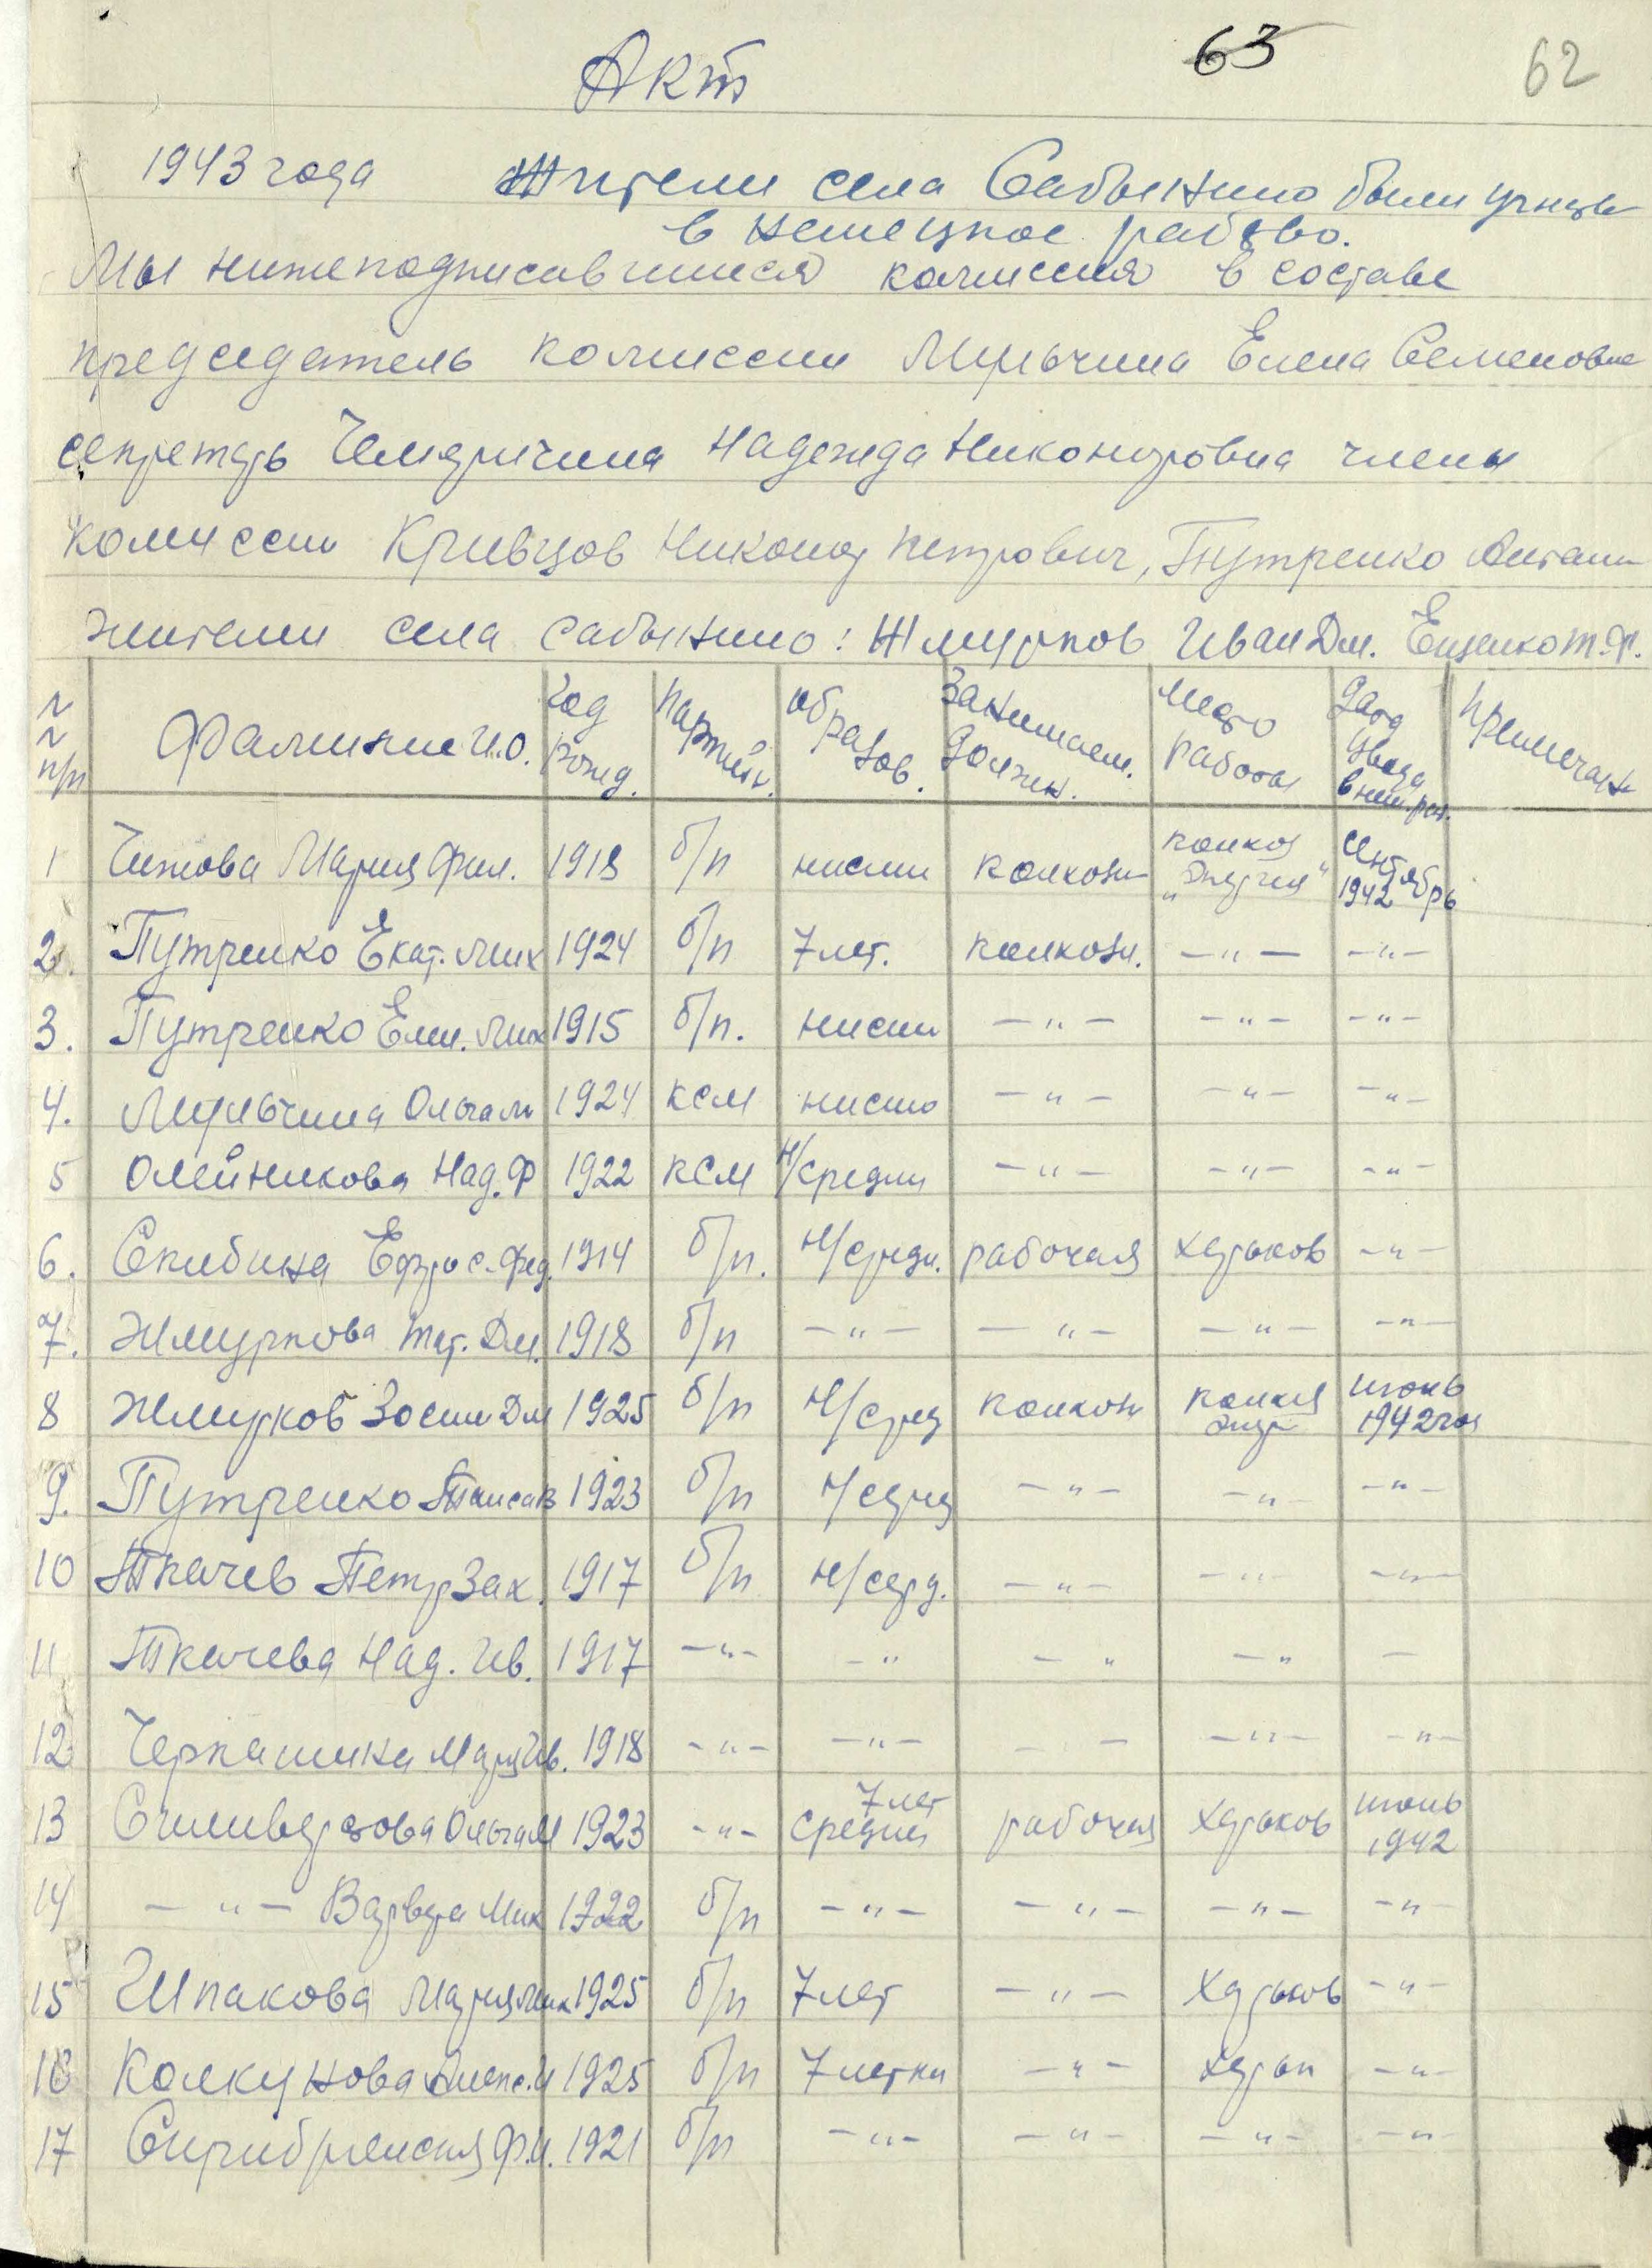 63 62
Акт
1943 года Жители села Сабынино были угнаты
в немецкое рабство.
Мы нижеподписавшиеся комиссия в составе
председатель комиссии Мульчина Елена Семеновна
секретарь Надежда Никоноровна члены
комиссии Кривцов Никонор Петрович, Путренко
жители села Сабынино: Жмурков Иван Дм. Ещенко Т.Ф.
№ № п/п Фамилии И.О. Год рожд. Партийн. образов. Занимаем. должн. место работы Дата увоза в нем. раб. Примечан
1 Чижова Мария Фил. 1918 б/п нисши колхозн колхоз „Энергия“ сентябрь 1942
2. Путренко Екат. Мих 1924 б/п 7 лет. колхозн. —"— —"—
3. Путренко Елен. Мих 1915 б/п. нисши —"— —"— —"—
4. Мульчина Ольга М 1924 ксм нисшо —"— —"— —"—
5 Олейникова Над. Ф 1922 ксм н/средни —"— —"— —"—
6. Скибина Ефрос. Фед. 1914 б/п. н/средн. рабочая Харьков —"—
7. Жмуркова Тат. Дм. 1918 б/п —"— —"— —"— —"—
8 Жмурков Зосим Дм 1925 б/п н/сред колхозн колхоз Энер июнь 1942 год
9. Путренко Таиса В 1923 б/п н/серед —"— —"— —"—
10 Ткачев Петр Зах. 1917 б/п н/серд. —"— —"— —"—
11 Ткачева Над. Ив. 1917 —"— —" — " —" —
12 Черкашина Мария Ив. 1918 —"— —"— — — —"— —"—
13 Ольга М 1923 —"— 7 лет средни рабочая Харьков июнь 1942
14 —"— Варвара Мих 1922 б/п —"— —"— —"— —"—
15 Шпакова Мария Мих 1925 б/п 7 лет —"— Харьков —"—
16 Колкунова Алекс. И 1925 б/п 7 летни —"— Харьк —"—
17 Ф.И. 1921 б/п —"— —"— —"— —"—